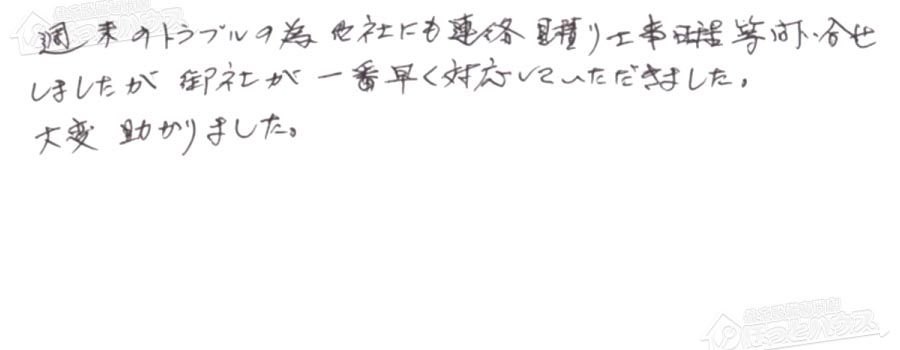 週末のトラブルの為 他社にも連絡 見積り工事日程等問い合せ
しましたが 御社が 一番早く対応していただきました。
大変 助かりました。
ほっとハウス